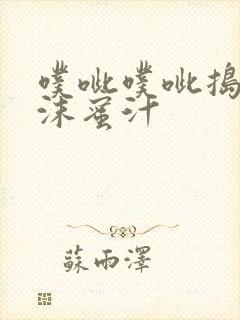 噗呲噗呲搗
沫蜜汁
蘇雨澤